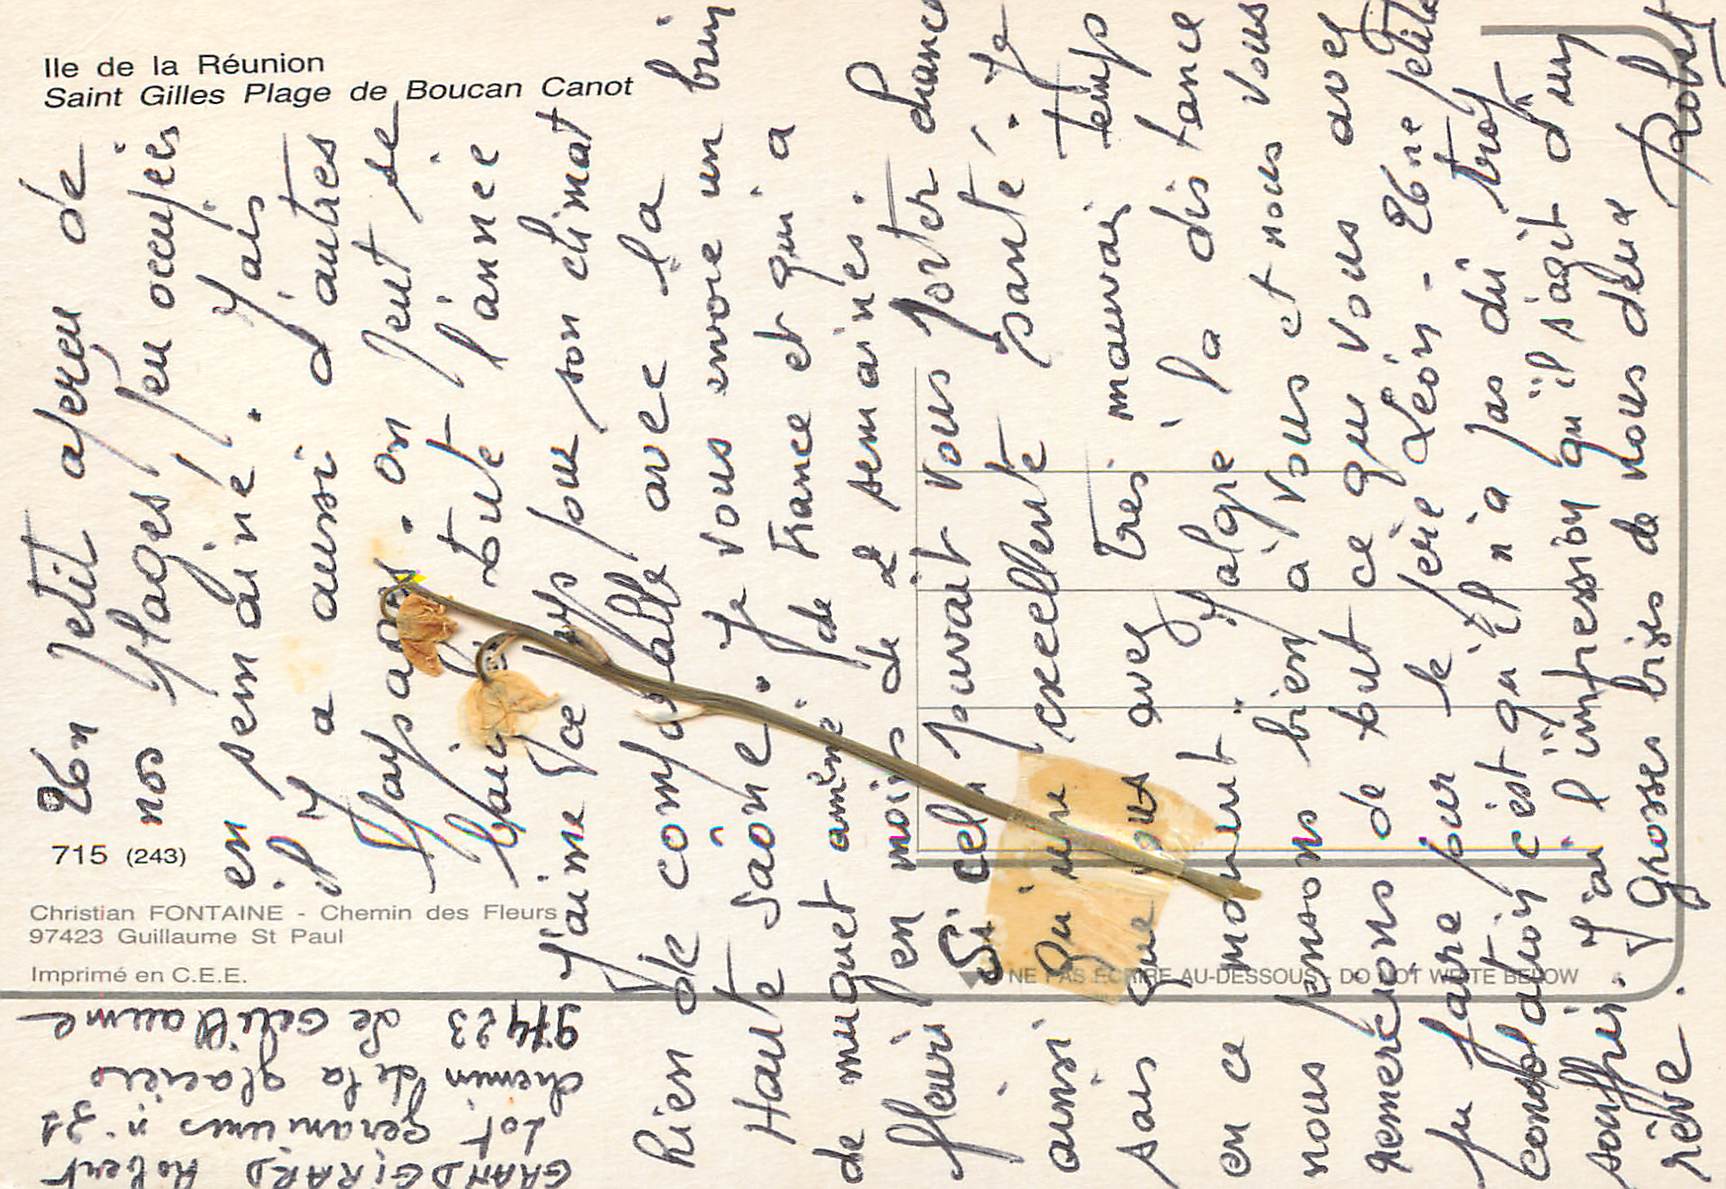 Ile de la Réunion
Saint Gilles Plage de Boucan Canot
715 (243)
Christian FONTAINE - Chemin des Fleurs
97423 Guillaume St Paul
Imprimé en C.E.E.
NE PAS ECRIRE AU-DESSOUS - DO NOT WRITE BELOW
Un petit aperçu de
nos plages peu occupées
en semaine. Mais
il y a aussi d'autres
paysages. on peut se
baigner toute l'année
J'aime ce pays pour son climat
Rien de comparable avec la
Haute Saône. Je vous envoie un brin
de muguet amené de France et qui a
fleuri en moins de 2 semaines.
Si cela pouvait vous porter chance
ainsi qu'une excellente santé. Je
sais que vous avez très mauvais temps
en ce moment. Malgré la distance
nous pensons bien à vous et nous vous
remercions de tout ce que vous avez
pu faire pour le père Léon - Une petite
consolation c'est qu'il n'a pas dû trop
souffrir. J'ai l'impression qu'il s'agit d'un
rêve. Grosses bises de nous deux
Robert
GRANDGIRARD Robert
Lot. Geraniums n° 31
chemin de la glacière
97423 Le Guillaume